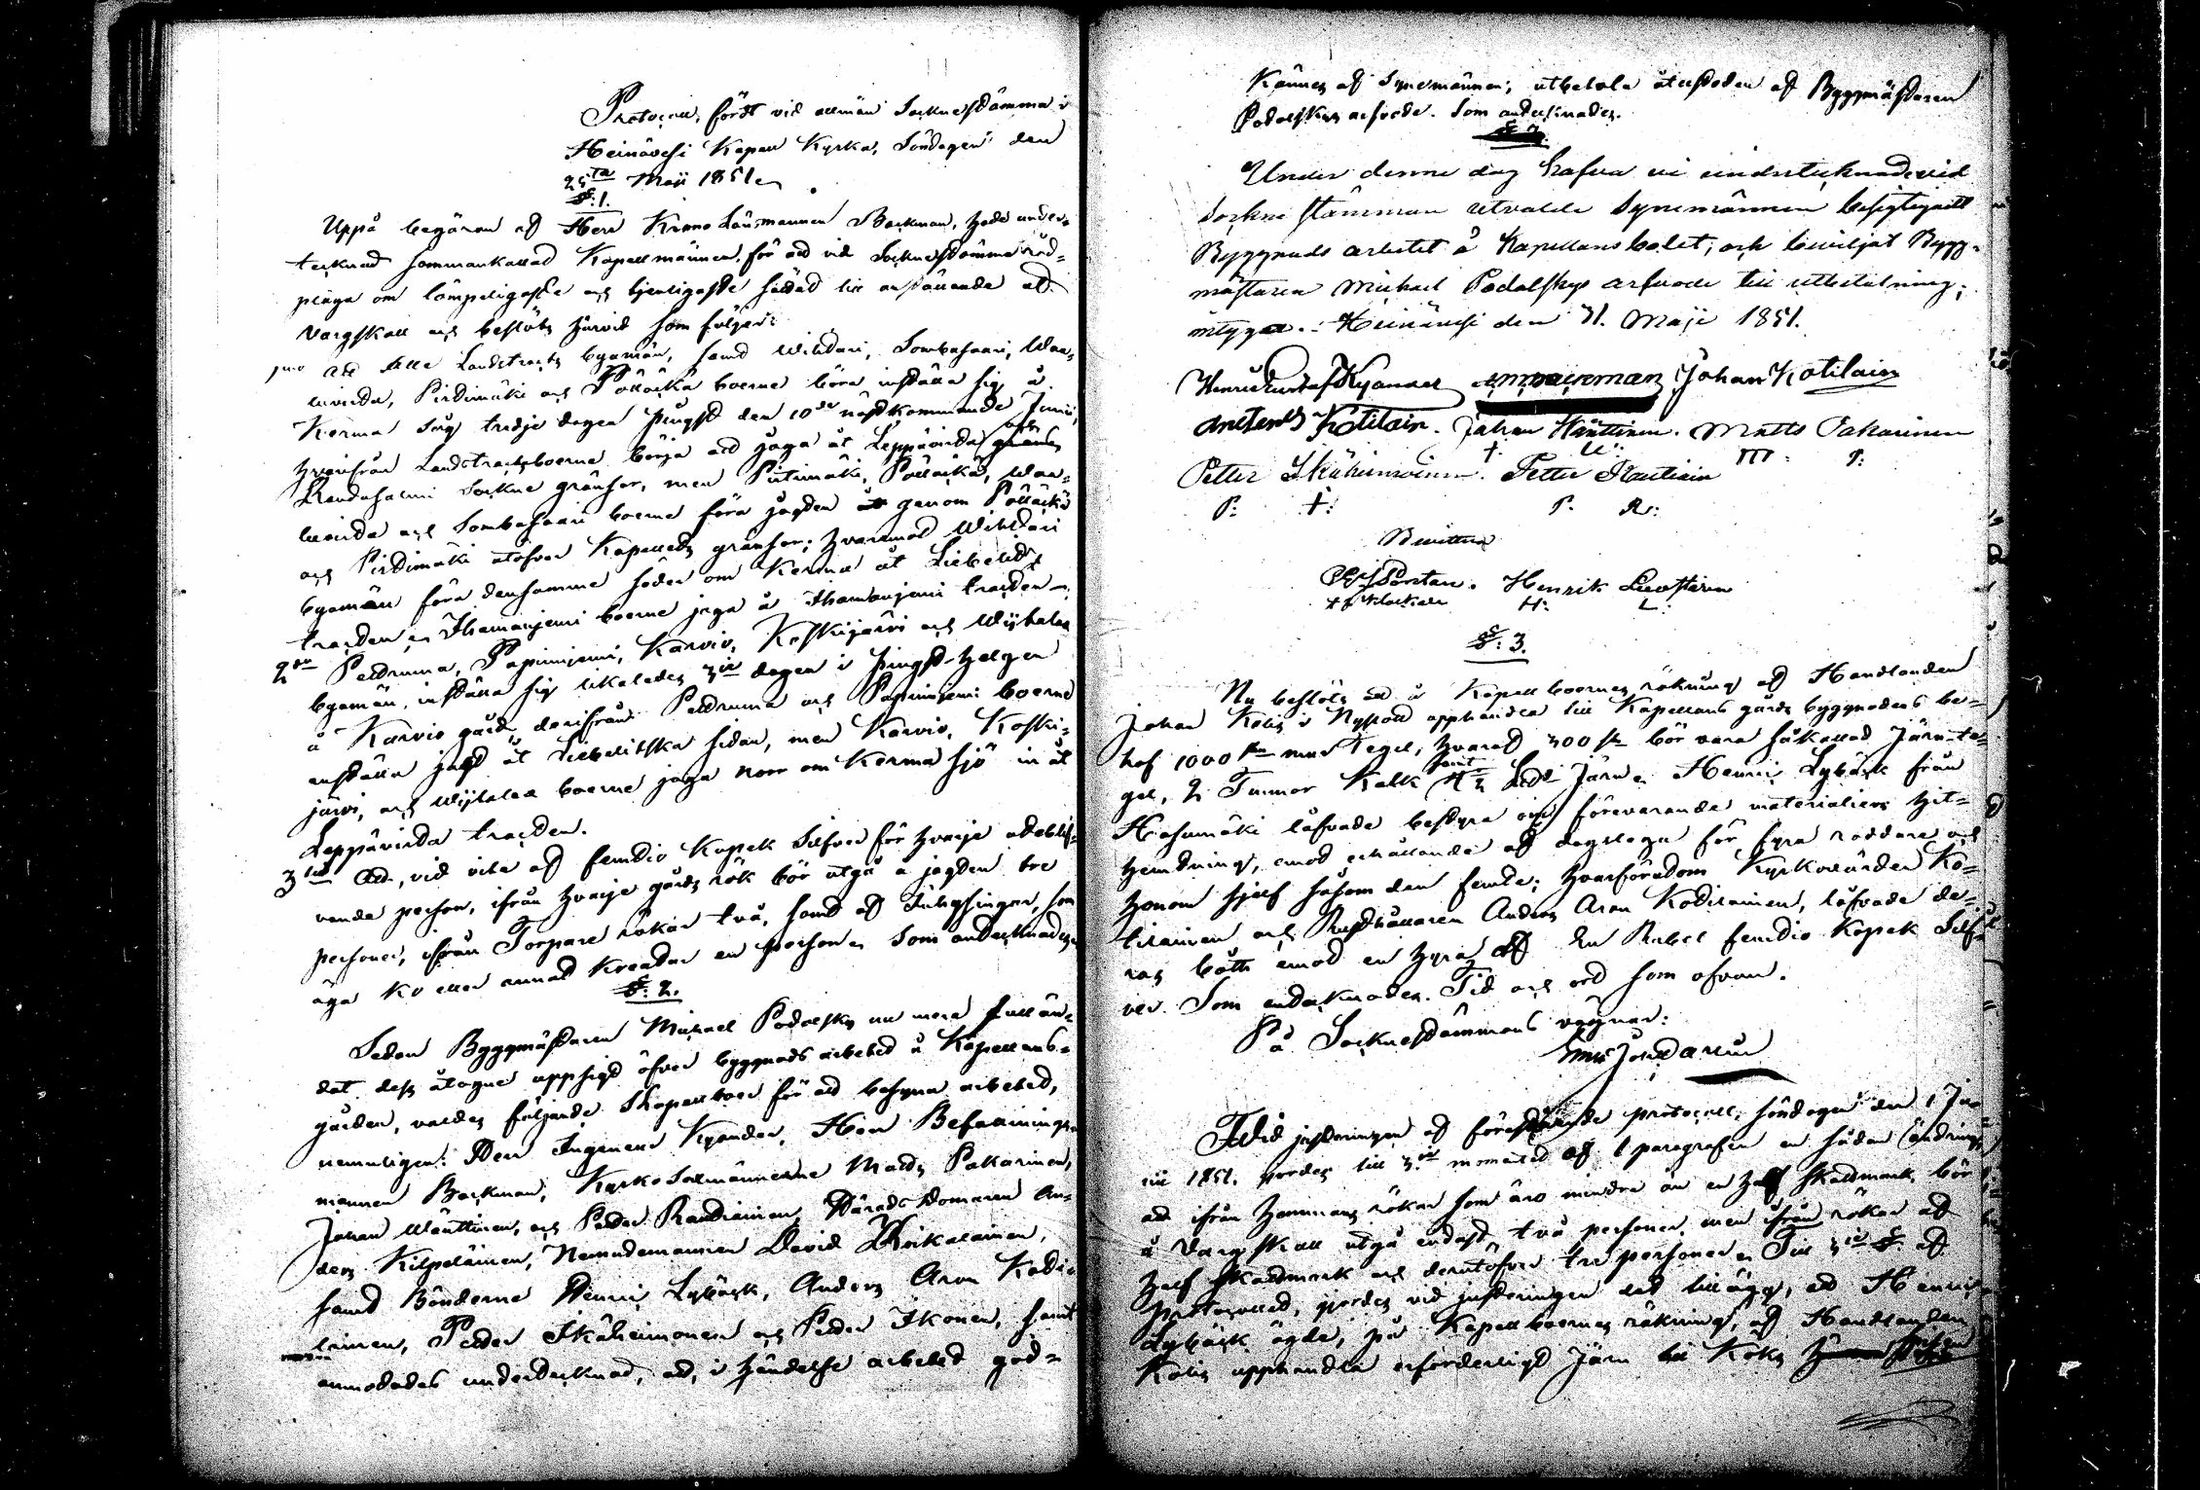 Protocoll, fördt vid allmän Socknestämma i
Heinävesi Kapell Kyrka, Söndagen den
25ta Maji 1851.
§: 1.
Uppå begäran af Herr Krono Länsmannen Backman, hade under-
tecknad sammankallad Kapellmännen, för att vid Socknestämma råd-
pläga om lämpeligaste och tjenligaste sättet till anställande af
Vargskall och beslöts härvid som följer:
1mo Att alla Landtrackts byamän, samt Wihtari, Sombasaari,
Pirdimäki och Pölläkkä boerne böra inställa sig å
Kerma såg tredje dagen Pingst den 10de nästkommande Junii,
hvarifrån Landstracktsboerne börja att jaga åt Leppävirta och
Randasalmi Sockne gränsor, men Pirtimäki, Pölläkkä,
och Sombasaari boerne föra jagden genom Pölläkkä
och Pirdimäki utöfver Kapellets gränsor; hvaremot Wihtari
byamän föra densamma söder om Kerma åt Liebelits
trackten, och Ihamanjemi boerne jaga å Ihamanjemi trackten.
2do Petruma, Papinnjemi, Karvio, Koskijärvi och Wihtalax
byamän, inställa sig likaledes 3ie dagen i Pingst-helgen
å Karvio gård, derifrån Petruma och Papinnjemi boerne
anställa jagt åt Liebelitska sidan, men Karvio, Koski-
järvi, och boerne jaga norr om Kerma sjö in åt
Leppävirda trackten.
3tio Att, vid vite af femtio Kopek Silfver för hvarje uteblif-
vande person, ifrån hvarje gårds rök bör utgå å jagden tre
personer, ifrån Torpare rökar två, samt af Inhysingar, som
äga ko eller annat kreatur en person. Som antecknades.
§: 2.
Sedan Byggmästaren Michael Podolsky nu mera fullän-
dat dess åtagne uppsigt öfver byggnads arbetet å Kapellans-
gården, valdes följande Kapellboer för att besyna arbetet,
nemnligen: Herr Ingenieur Kyander, Herr Befallnings-
mannen Backman, Kyrko Sexmännerne Matts Pakarinen,
Johan Wänttinen, och Petter Rautiainen, Härads Domaren An-
ders Kilpeläinen, Nemndemannen David Roikalainen,
samt Bönderne Henric Lybäck, Anders Aron Kodi-
lainen, Petter Ikäheimonen och Petter Ikonen, samt
anmodades undertecknad, att, i händelse arbetet god-
kännes af Synemännen, utbetala återstoden af Byggmästaren
Podolskys arfvode. Som antecknades.
Under denne dag hafva vi undertecknade vid
Sockne stämman utvalde Synemännen besigtigatt
Byggnads arbetet å Kapellansbolet, och beviljat Bygg-
mästaren Michael Podolskys arfvode till utbetalning;
intygas. Heinävesi den 31. Maji 1851.
Henric Gustaf Kyander Johan Kotilain
Anders Kotilain. Johan Wänttinen. Matts Pakarinen
Petter Ikäheimoinen. Petter Rautiain
P: I: P. R:
Bevittna
Henrik Leustinen
H: L:
§: 3.
Nu beslöts att å Kapell boernes räkning af Handlanden
Johan Kolis i Nyslott upphandla till Kapellans gårds byggnadens be-
hof 1000 Tegel, hvaraf 300 bör vara såkallad Järn-te-
gel, 2 Tunnor Kalk samt Järn. Henric Lybäck från
Hasumäki låfvade bestyra om förevarande materialiers hit-
hemtning, emot erhållande af dagslega för fyra roddare och
honom sjelf såsom den femte; hvarförutom Kyrkovärden Ko-
tilainen och Rusthållaren Anders Aron Kodilainen, låfvade de-
ras båtk emot en hyra af En Rubel femtio Kopek Silf-
ver. Som antecknades. Tid och ord som ofvan.
På Socknestämmans vägnar:
Wid justeringen af förestående protocoll, söndagen den 1 Ju-
nii 1851. gjordes till 3die momentet af 1 paragrafen en sådan ändring,
att ifrån hemmans rökar som äro mindre än en half skattmark bör
å Vargskall utgå endast två personer men ifrån rökar af
half skattmark och derutöfver tre personer. Till 3ie §. af
protocollet, gjordes vid justeringen det tillägg, att Henric
Lybäck ägde, på Kapellboernes räkning, af Handlanden
Kolis upphandla erforderligt Järn till Köks